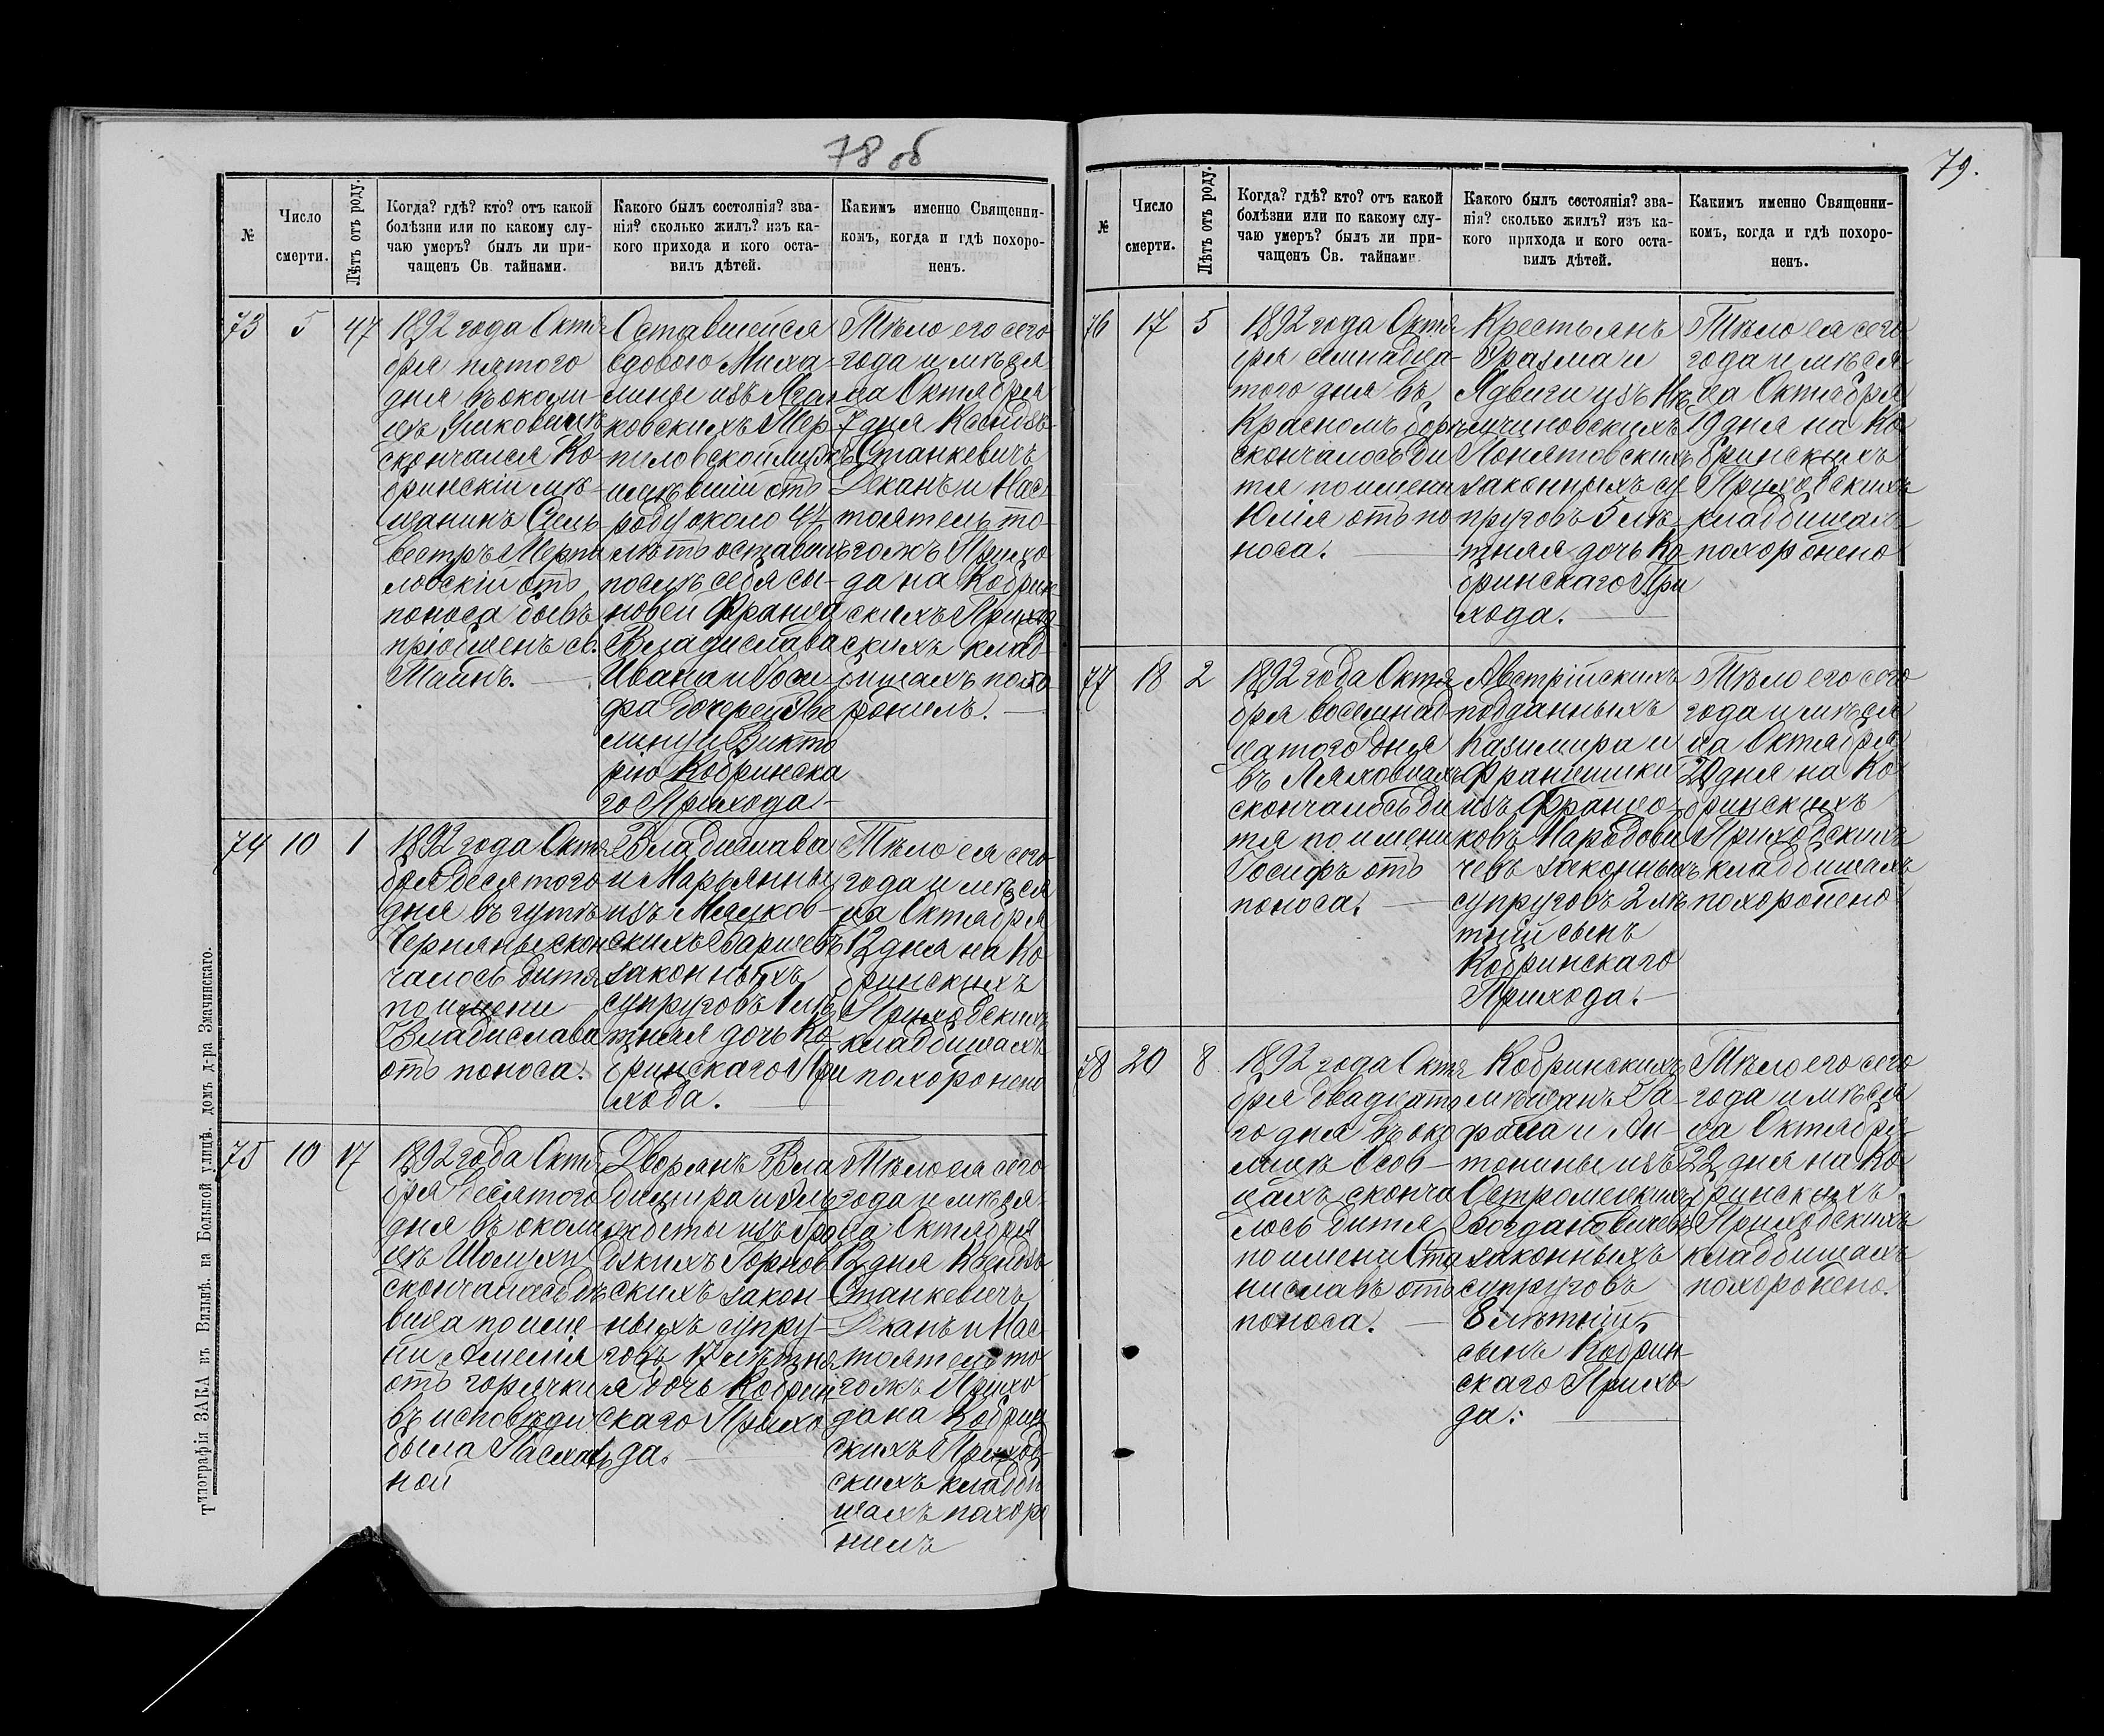 78 об
№
Число
смерти.
Лѣтъ отъ роду.
Когда? гдѣ? кто? отъ какой
болѣзни или по какому слу-
чаю умеръ? былъ ли при-
чащенъ Св. тайнами.
Какого былъ состоянія? зва-
нія? сколько жилъ? изъ ка-
кого прихода и кого оста-
вилъ дѣтей.
Какимъ именно Священни-
комъ, когда и гдѣ похоро-
ненъ.
73
5
47
1892 года Октя
бря пятого
дня въ околи-
цѣ
скончался Ко-
бринскій мѣ-
щанинъ Силь
вестръ
ловскій отъ
поноса бывъ
пріобщенъ св.
Тайнъ.
Оставшейся
вдовою Миха-
лины изъ
ковскихъ Мер-
пиловской мужъ
имѣвшій отъ
роду около 47
лѣтъ оставивъ
послѣ себя сы-
новей Франца
Владислава
Ивана и Іоси-
фа дочерей
мину и Викто
рію Кобринска
го Прихода
Тѣло его сего
года и мѣся
ца Октября
7 дня Ксендзъ
Станкевичъ
Деканъ и Нас-
тоятель то-
гожъ Прихо
да на Кобрин
скихъ Приход-
скихъ клад-
бищахъ похо-
ронилъ.
74
10
1
1892 года Октя
бря десятого
дня въ гутѣ
Черняны скон
чалось дитя
по имени
Владислава
отъ поноса.
Владислава
и Марьянны
изъ Мацков-
скихъ
законныхъ
супруговъ 1 лѣ
тняя дочь Ко-
бринскаго При
хода.
Тѣло ея сего
года и мѣся
ца Октября
12 дня на Ко
бринскихъ
Приходскихъ
кладбищахъ
похоронено
75
10
17
1892 года Октя
бря десятого
дня въ околи
цѣ Шолухи
скончалась дѣ
вица по име-
ни Амелія
отъ горячки
въ исповѣди
была Пасхаль
ной
Дворянъ Вла
диміра и Эль
жбеты изъ
дскихъ Горнов
скихъ закон-
ныхъ супру-
говъ 17 лѣтня
я дочь Кобрин
скаго Прихо
да.
Тѣло ея сего
года и мѣся-
ца Октября
12 дня Ксендзъ
Станкевичъ
Деканъ и Нас
тоятель то
гожъ Прихо
да на Кобрин
скихъ Приход
скихъ кладби
щахъ похоро
нилъ
Типографія ЗАКА въ Вильнѣ. на Большой улицѣ. домъ д-ра Змачинскаго.
79.
№
Число
смерти.
Лѣтъ отъ роду.
Когда? гдѣ? кто? отъ какой
болѣзни или по какому слу-
чаю умеръ? былъ ли при-
чащенъ Св. тайнами
Какого былъ состоянія? зва-
нія? сколько жилъ? изъ ка-
кого прихода и кого оста-
вилъ дѣтей.
Какимъ именно Священни-
комъ, когда и гдѣ похоро-
ненъ.
76
17
5
1892 года Октя
бря семнадца-
того дня въ
Красномъ борѣ
скончалось ди
тя по имени
Юлія отъ по
носа.
Крестьянъ
Эразма и
Ядвиги изъ
Понятовскихъ
законныхъ су
пруговъ 5 лѣ-
тняя дочь Ко
бринскаго При
хода.
Тѣло ея сего
года и мѣся
ца Октября
19 дня на Ко
бринскихъ
Приходскихъ
кладбищахъ
похоронено
77
18
2
1892 года Октя
бря восемнад
цатого дня
въ Ляховцахъ
скончалось ди
тя по имени
Іосифъ отъ
поноса.
Австрійскихъ
подданныхъ
Казимира и
Францишки
изъ Францо-
ковъ Народови
чевъ законныхъ
супруговъ 2 лѣ
тній сынъ
Кобринскаго
Прихода.
Тѣло его сего
года и мѣся
ца Октября
20 дня на Ко
бринскихъ
Приходскихъ
кладбищахъ
похоронено
78
20
8
1892 года Октя
бря двадцато
го дня въ око
лицѣ Осов-
цахъ сконча
лось дитя
по имени Ста
ниславъ отъ
поноса.
Кобринскихъ
мѣщанъ
и Ан-
тонины изъ
Остромецкихъ
Богдановичевъ
законныхъ
супруговъ
8 лѣтній
сынъ Кобрин-
скаго Прихо
да.
Тѣло его сего
года и мѣся
ца Октября
22 дня на Ко
бринскихъ
Приходскихъ
кладбищахъ
похоронено.